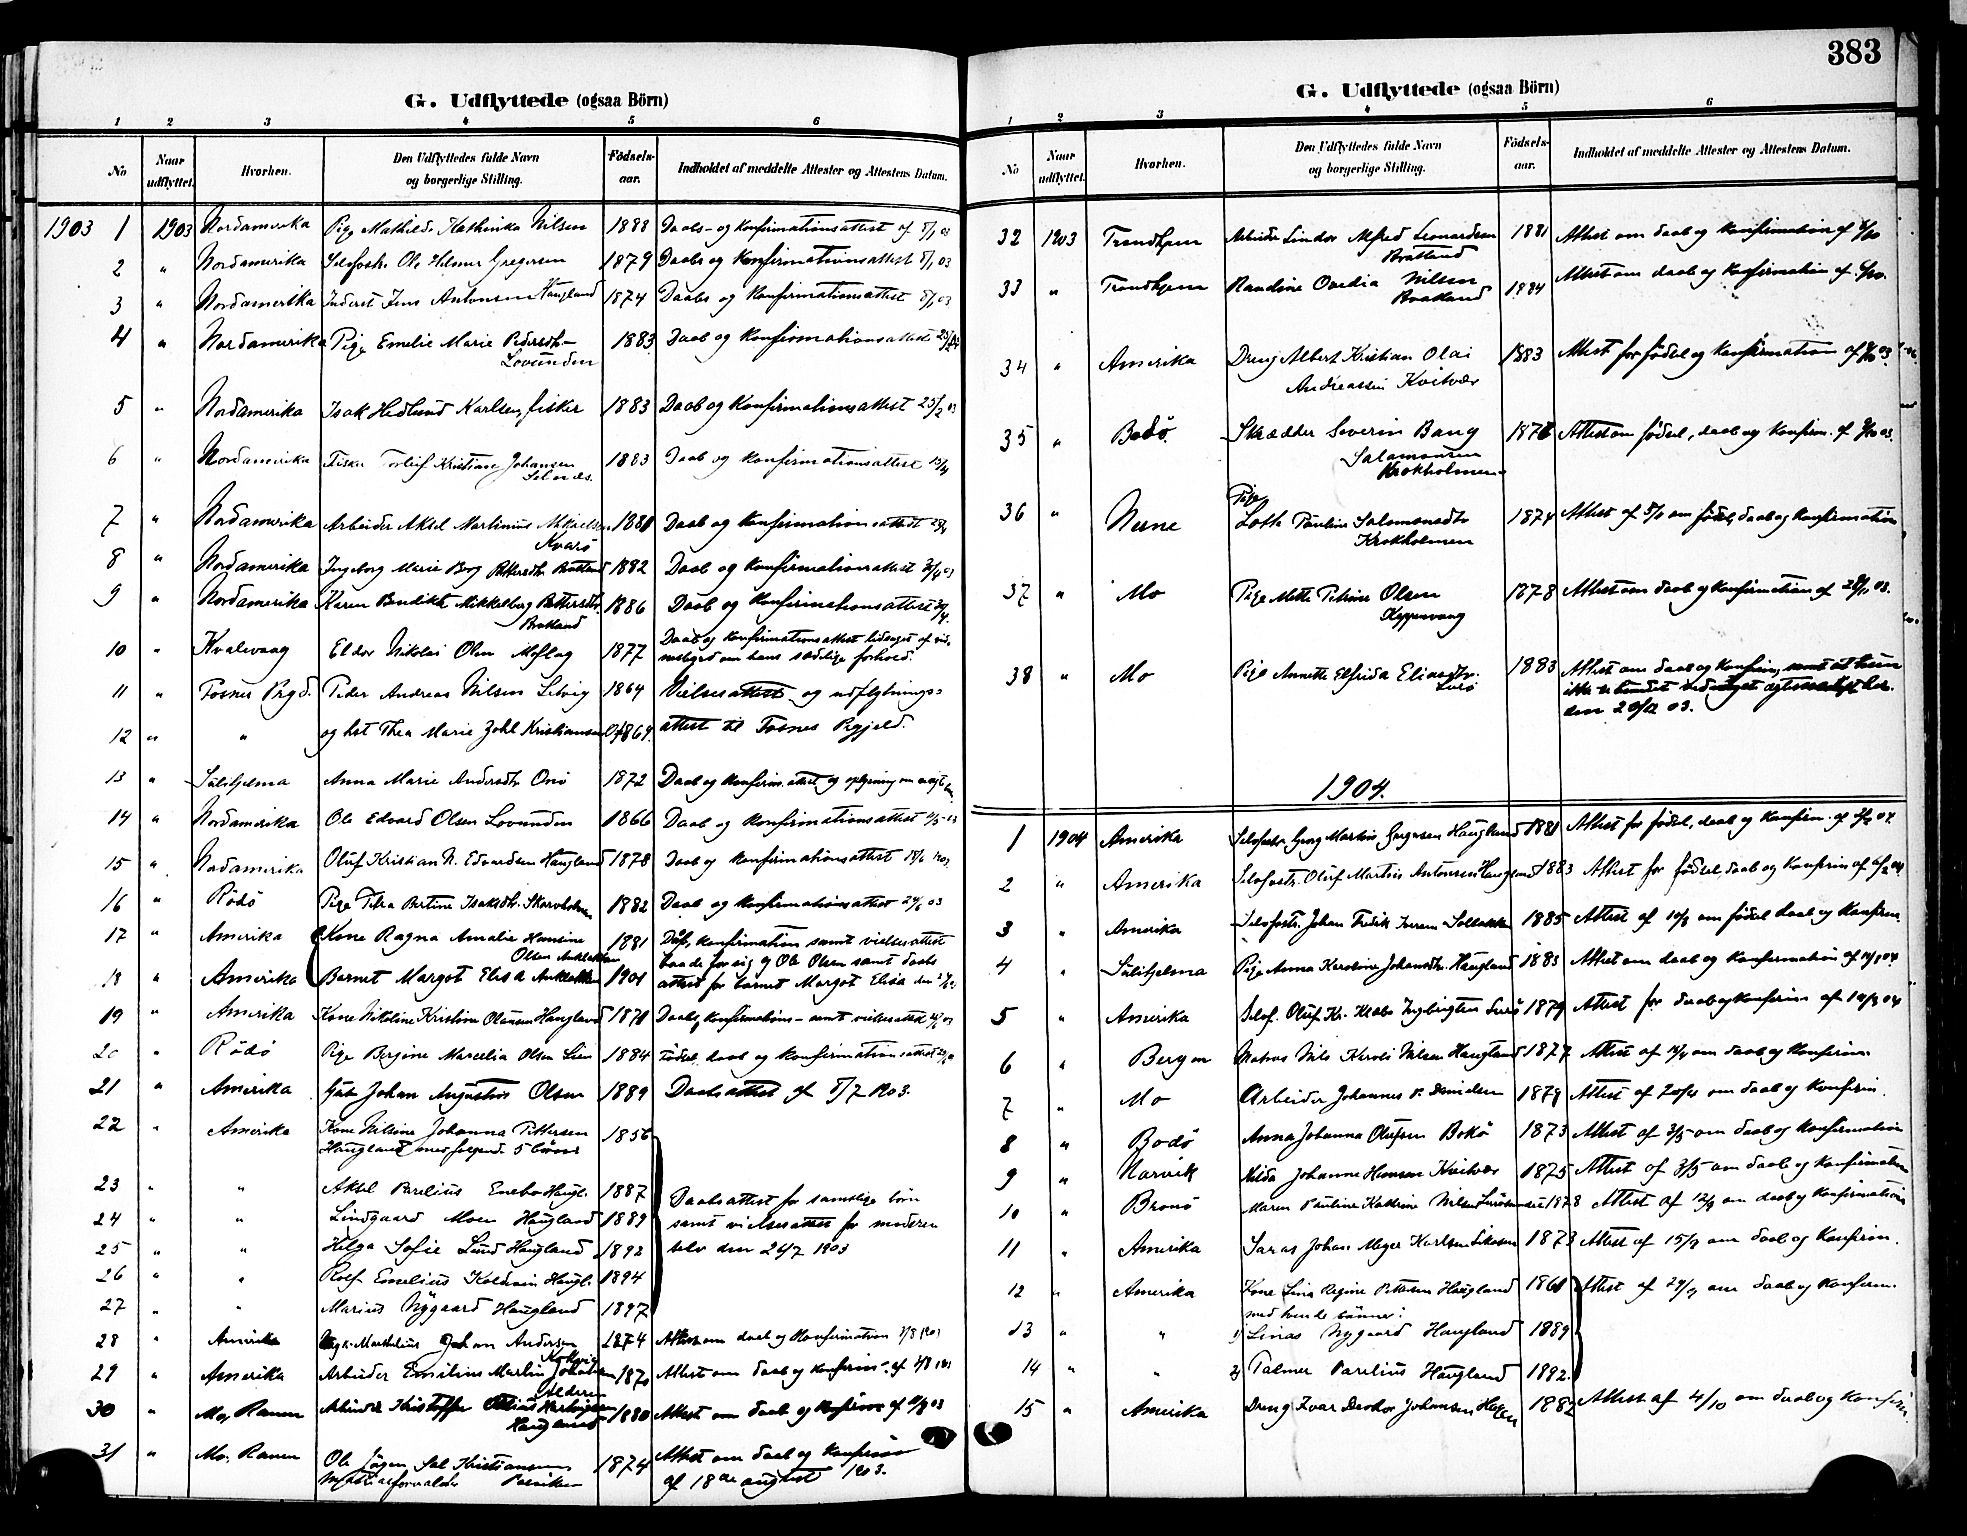 383
G. Udflyttede (ogsaa Börn)
1 2 3 4 5 6
No
Naar udflyttet.
Hvorhen.
Den Udflyttedes fulde Navn og borgerlige Stilling.
Födsels-aar.
Indholdet af meddelte Attester og Attestens Datum.
1903 1 1903 Nordamerika Pige Mathilde Kathinka Nilsen 1888 Daabs- og konfirmationsattest af 8/1 03
2 " Nordamerika Selvfostr. Ole Helmer Gregersen 1879 Daabs og konfirmationsattest 8/1 03
3 " Nordamerika Inderst Jens Antonsen Haugland 1874 Daabs og konfirmationsattest 8/1 03
4 " Nordamerika Pige Emelie Marie Pedersdtr 1883 Daab og konfirmationsattest
Lovunden
5 " Nordamerika Isak Hedlund Karlsen, fisker 1883 Daab og konfirmationsattest 25/2 03
6 " Nordamerika Fisker Torleif Kristian Johansen 1883 Daab og konfirmationsattest
Selnes.
7 " Nordamerika Arbeider Aksel Martinius Mikaelsen 1881 Daab og konfirmationsattest
Kvarø
8 " Nordamerika Ingeborg Marie Berg Pettersdtr Bratland 1882 Daab og konfirmationsattest
9 " Nordamerika Karen Bendikte Mikkelborg Pettersdtr. 1886 Daab og konfirmationsattest
Bratland
10 " Kvalevaag Eldor Nikolai Olsen Moflag 1877 Daab og konfirmationsattest ledsaget af vid-
nesbyrd om hans sædelige forhold.
11 " Fosnes Prgd. Peder Andreas Nilsen Selvig 1864 Vielsesattest og udflytnings-
12 " " og hst Thea Marie Johl Kristiansen 1869. attest til Fosnes Prgjeld.
13 " Sulitjelma Anna Marie Andersdtr Onø 1872 Daab og konfirm. attest og oplysning om
14 " Nordamerika Ole Edvard Olsen Lovunden 1866 Daab og konfirmationsattest
15 " Nordamerika Oluf Kristian N. Edvardsen Haugland 1878 Daab og konfirmationsattest
16 " Rödö Pige Thea Bertine Isaksdtr. Skarvholmen 1882 Daab og konfirmationsattest 29/6 03
17 " Amerika Kone Ragna Amalie Hansine 1881 Daab, konfirmation samt vielsesattest
Olsen
18 " Amerika Barnet Margot Elisa 1901 baade for sig og Ole Olsen samt daabs
attest for barnet Margot Elisa den
19 " Amerika Kone Nikoline Kristine Olausen Haugland 1871 Daab og konfirmations- samt vielsesattest
20 " Rödö Pige Bergine Marcelia Olsen Lien 1884 Födsel daab og konfirmationsattest
21 " Amerika Gut Johan Augustinus Olsen 1889 Daabsattest af 8/7 1903.
22 " Amerika Kone Nilsine Johanna Pettersen 1856
Haugland med følgende 5 börn
23 " " Aksel Parelius Enebo Haugl. 1887
24 " " Lindgaard Moen Haugland 1889
25 " " Helga Sofie Lund Haugland 1892
26 " " Rolf Emelius Koldvin Haugl. 1894
27 " " Marius Nygaard Haugland 1897
Daabsattest for samtlige börn
samt vielsesattest for moderen
selv den 24/7 1903
28 " Amerika Johan Andersen 1874 Attest om daab og konfirmation 1/8 1903
29 " Amerika Arbeider Emilius Martin Jakobsen 1870 Attest om daab og konfirm. af 1/8 1903
Alderen
30 " Mo, Ranen Arbeider Kristoffer 1880 Attest om daab og konfirm af
Haugland
31 " Mo, Ranen Ole Jørgen Sal Kristiansen 1874 Attest om daab og konfirm
Materialforvalter af 18de august 1903.
G. Udflyttede (ogsaa Börn)
1 2 3 4 5 6
No
Naar udflyttet.
Hvorhen.
Den Udflyttedes fulde Navn og borgerlige Stilling.
Födsels-aar.
Indholdet af meddelte Attester og Attestens Datum.
32 1903 Trondhjem Arbeider Sindor Alfred Leonardsen 1881 Attest om daab og konfirmation af
Bratland
33 " Trondhjem Randine Ovedia Nilsen 1884 Attest om daab og konfirmation af
Bratland
34 " Amerika Dreng Albert Kristian Olai 1883 Attest for födsel og konfirmation af
Andreassen Kvitvær
35 " Bodö. Skrædder Severin Bang Attest om födsel, daab og konfirm. af
Salamonsen
Krokholmen
36 " Nesne Pige
Lotte Pauline Salamonsdtr 1874 Attest af om födsel, daab og konfirmation
Krokholmen
37 " Mo Pige Mette Petrine Olsen 1878 Attest om daab og konfirmation af 28/11 03.
38 " Mo Pige Annette Elfrida Eliasdtr. 1883 Attest om daab og konfirm, samt at hun
Lurö ikke er bundet ved noget ægteskabsløfte her.
den 29/12 03.
1904.
1 1904 Amerika Selvfostr. Georg Martin Gregersen Haugland 1881 Attest for födsel, daab og konfirm. af
2 " Amerika Selvfostr. Oluf Martin Antonsen Haugland 1883 Attest for födsel, daab og konfirm af
3 " Amerika Selvfostr. Johan Fredrik 1885 Attest af om födsel daab og konfirm.
4 " Sulitjelma Pige Anna Karoline Johansdtr. Haugland 1883 Attest om daab og konfirmation af
5 " Amerika Selvf. Oluf Kr. Ingbrigtsen Lurö 1879 Attest for daab og konfirm af
6 " Bergen Matros Nils Karoli Nilsen Haugland 1877 Attest af om daab og konfirm.
7 " Mo Arbeider Johannes P. Danielsen 1879 Attest af 20/4 om daab og konfirm.
8 " Bodö Anna Johanna Olufsen Bokö 1873 Attest af 3/5 om daab og konfirmation
9 " Narvik Hilda Johanne Hansen Kvitvær 1875 Attest af 3/5 om daab og konfirmation
10 " Brönö Maren Pauline Kathrine Nilsen 1878 Attest af om daab og konfirmation
11 " Amerika Saras Johan Meyer Karlsen 1873 Attest af 15/9 om daab og konfirm.
12 " Amerika Kone Lina Regine Pettersen Haugland 1861 Attest af 29/9 om daab og konfirm.
med hendes sönner:
13 " " 1) Linas Nygaard Haugland 1889
14 " " 2) Talmer Parelius Haugland 1892
15 " Amerika Dreng Ivar Johansen 1882 Attest af 4/10 om daab og konfirm.